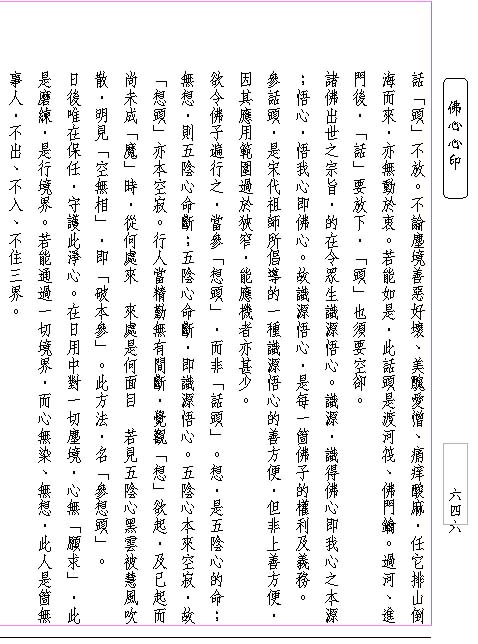 佛心心印
話「頭」不放。不論塵境善惡好壞、美醜愛憎、痛痒酸麻，任它排山倒
海而來，亦無動於衷。若能如是，此話頭是渡河筏、佛門鑰。過河、進
門後，「話」要放下，「頭」也須要空卻。
諸佛出世之宗旨，的在令眾生識源悟心。識源，識得佛心即我心之本源
；悟心，悟我心即佛心。故識源悟心，是每一箇佛子的權利及義務。
參話頭，是宋代祖師所倡導的一種識源悟心的善方便，但非上善方便，
因其應用範圍過於狹窄，能應機者亦甚少。
欲令佛子遍行之，當參「想頭」，而非「話頭」。想，是五陰心的命；
無想，則五陰心命斷；五陰心命斷，即識源悟心。五陰心本來空寂，故
「想頭」亦本空寂。行人當精勤無有間斷，覺觀「想」欲起，及已起而
尚未成「魔」時，從何處來　來處是何面目　若見五陰心黑雲被慧風吹
散，明見「空無相」，即「破本參」。此方法，名「參想頭」。
日後唯在保任，守護此淨心。在日用中對一切塵境，心無「願求」，此
是磨練，是行境界。若能通過一切境界，而心無染、無想，此人是箇無
事人，不出、不入、不住三界。
六四六